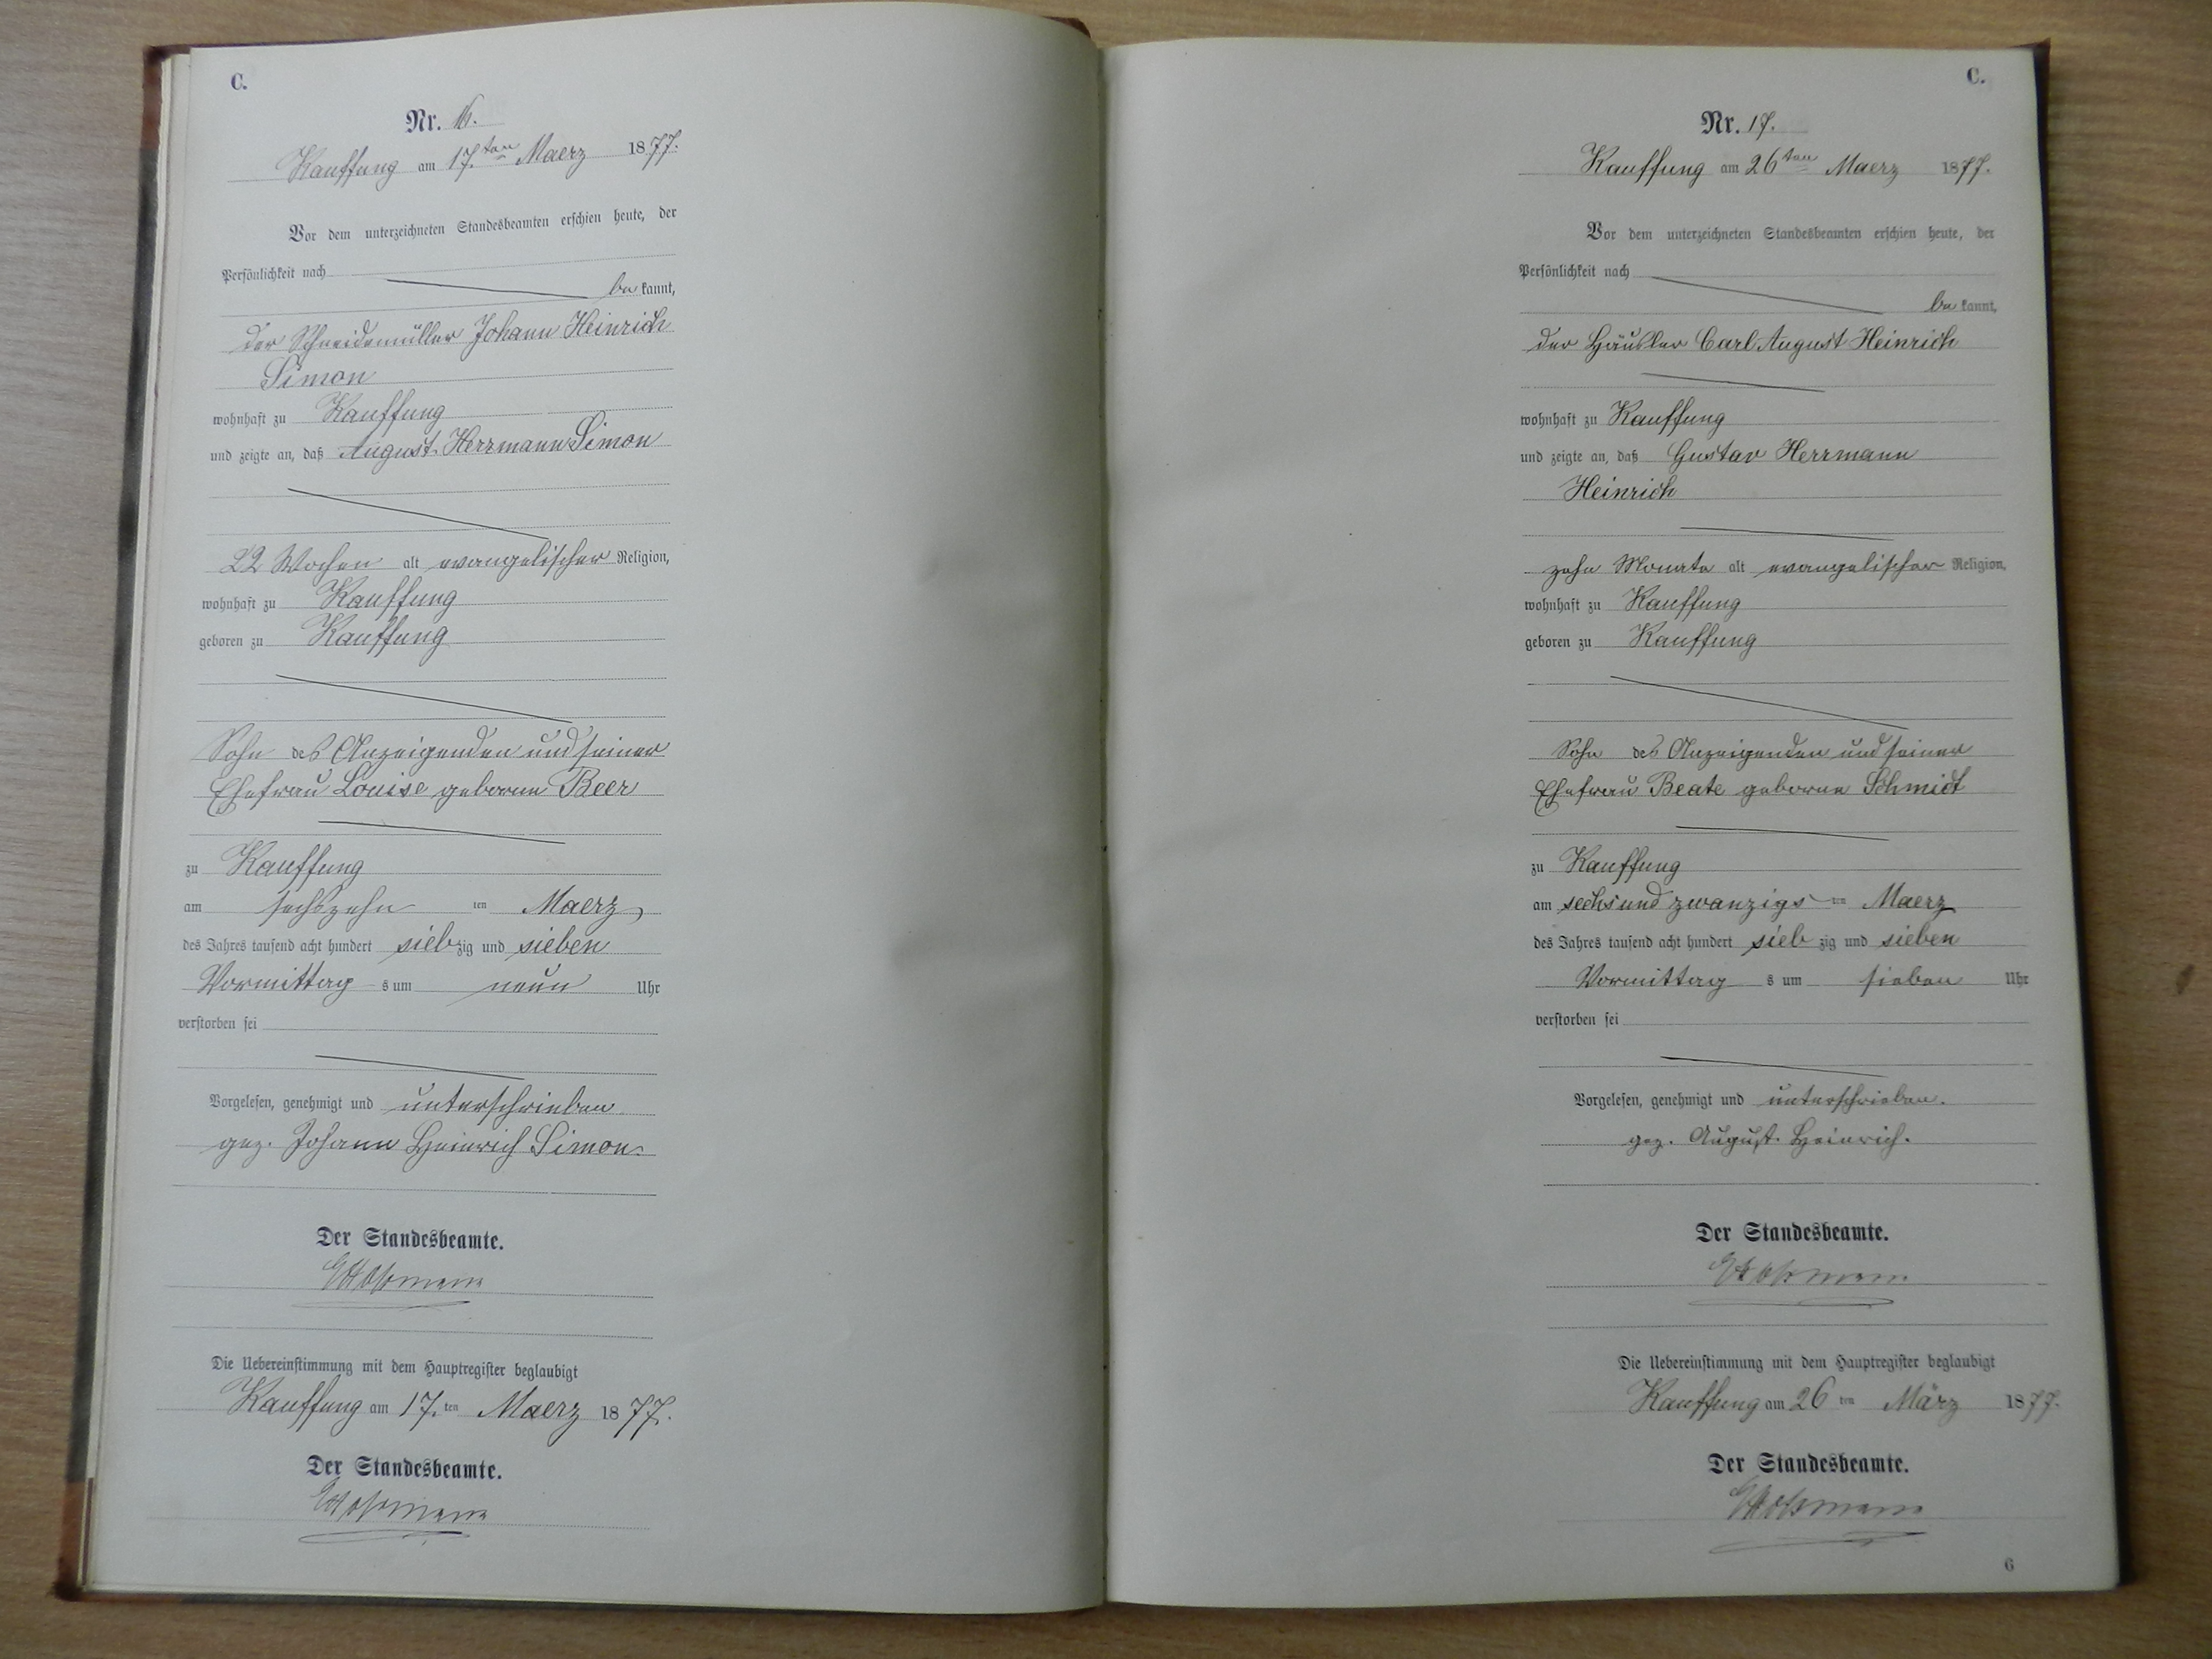 C.
Nr. 16.
Kauffung am 17.ten Maerz 1877.
Vor dem unterzeichneten Standesbeamten erschien heute, der
Persönlichkeit nach
be kannt,
der Schneidemüller Johann Heinrich
Simon
wohnhaft zu Kauffung
und zeigte an, daß August Herrmann Simon
22 Wochen alt evangelischer Religion,
wohnhaft zu Kauffung
geboren zu Kauffung
Sohn des Anzeigenden und seiner
Ehefrau Louise geborne Beer
zu Kauffung
am sechszehn ten Maerz
des Jahres tausend acht hundert sieb zig und sieben
Vormittag s um neun Uhr
verstorben sei
Vorgelesen, genehmigt und unterschrieben
gez. Johann Heinrich Simon.
Der Standesbeamte.
Die Uebereinstimmung mit dem Hauptregister beglaubigt
Kauffung am 17. ten Maerz 1877.
Der Standesbeamte.
C.
Nr. 17.
Kauffung am 26ten Maerz 1877.
Vor dem unterzeichneten Standesbeamten erschien heute, der
Persönlichkeit nach
be kannt,
der Häusler Carl August Heinrich
wohnhaft zu Kauffung
und zeigte an, daß Gustav Herrmann
Heinrich
zehn Monate alt evangelischer Religion,
wohnhaft zu Kauffung
geboren zu Kauffung
Sohn des Anzeigenden und seiner
Ehefrau Beate geborne Schmidt
zu Kauffung
am sechs und zwanzigs ten Maerz
des Jahres tausend acht hundert sieb zig und sieben
Vormittag s um sieben Uhr
verstorben sei
Vorgelesen, genehmigt und unterschrieben.
gez. August Heinrich.
Der Standesbeamte.
Die Uebereinstimmung mit dem Hauptregister beglaubigt
Kauffung am 26 ten März 1877.
Der Standesbeamte.
6